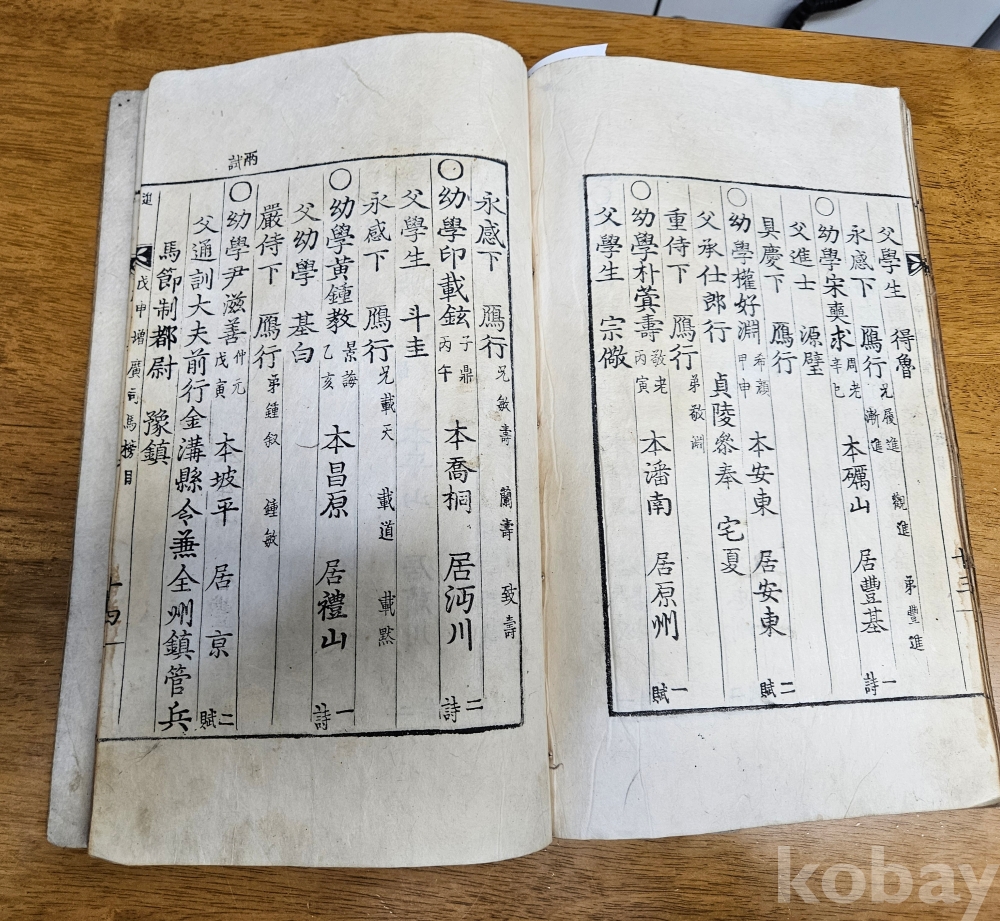 父學生 得魯
永感下 鴈行 兄履進 漸進 觀進 弟豐進
○幼學宋奭求 周老 辛巳 本礪山 居豐基 一詩
父進士 源璧
具慶下 鴈行
○幼學權好淵 希顔 甲申 本安東 居安東 二賦
父承仕郎行 貞陵參奉 宅夏
重侍下 鴈行 弟敬淵
○幼學朴蓂壽 敬老 丙寅 本潘南 居原州 一賦
父學生 宗儆
十三
永感下 鴈行 兄敏壽 蘭壽 致壽
○幼學印載鉉 子鼎 丙午 本喬桐 居沔川 二詩
父學生 斗圭
永感下 鴈行 兄載天 載道 載黙
○幼學黃鍾教 景誨 乙亥 本昌原 居禮山 一詩
父幼學 基白
嚴侍下 鴈行 弟鍾叙 鍾敏
兩試
○幼學尹滋善 仲元 戊寅 本坡平 居京 二賦
父通訓大夫前行金溝縣令兼全州鎭管兵
馬節制都尉 豫鎭
進
戊申增廣司馬榜目
十四
kobay